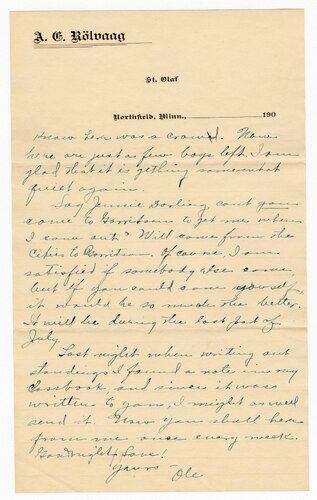 A. E. Rölvaag
St. Olaf
Northfield, Minn., 190
know here was a crowd. Now
here are just a few boys left. I am
glad that it is getting somewhat
quiet again.
Say Jennie Darling, cant you
come to Garretson to get me when
I come out? Will come from the
Cities to Garretson. Of course, I am
satisfied if somebody else come,
but if you could come yourself
it would be so much the better.
It will be during the last part of
July.
Last night when writing out
standings I found a note in my
classbook and since it was
written to you, I might as well
send it. Now you shall hear
from me once every week.
Goodnight Love!
Yours
Ole